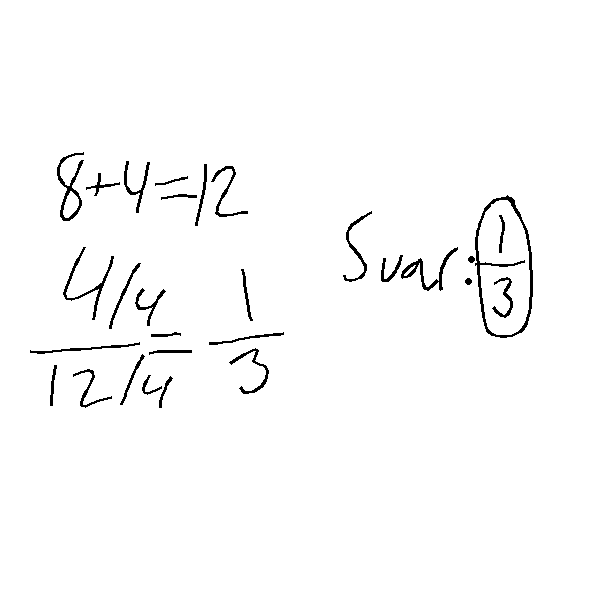 8+4=12
4/4
12/4
=
1
3
Svar:
1
3